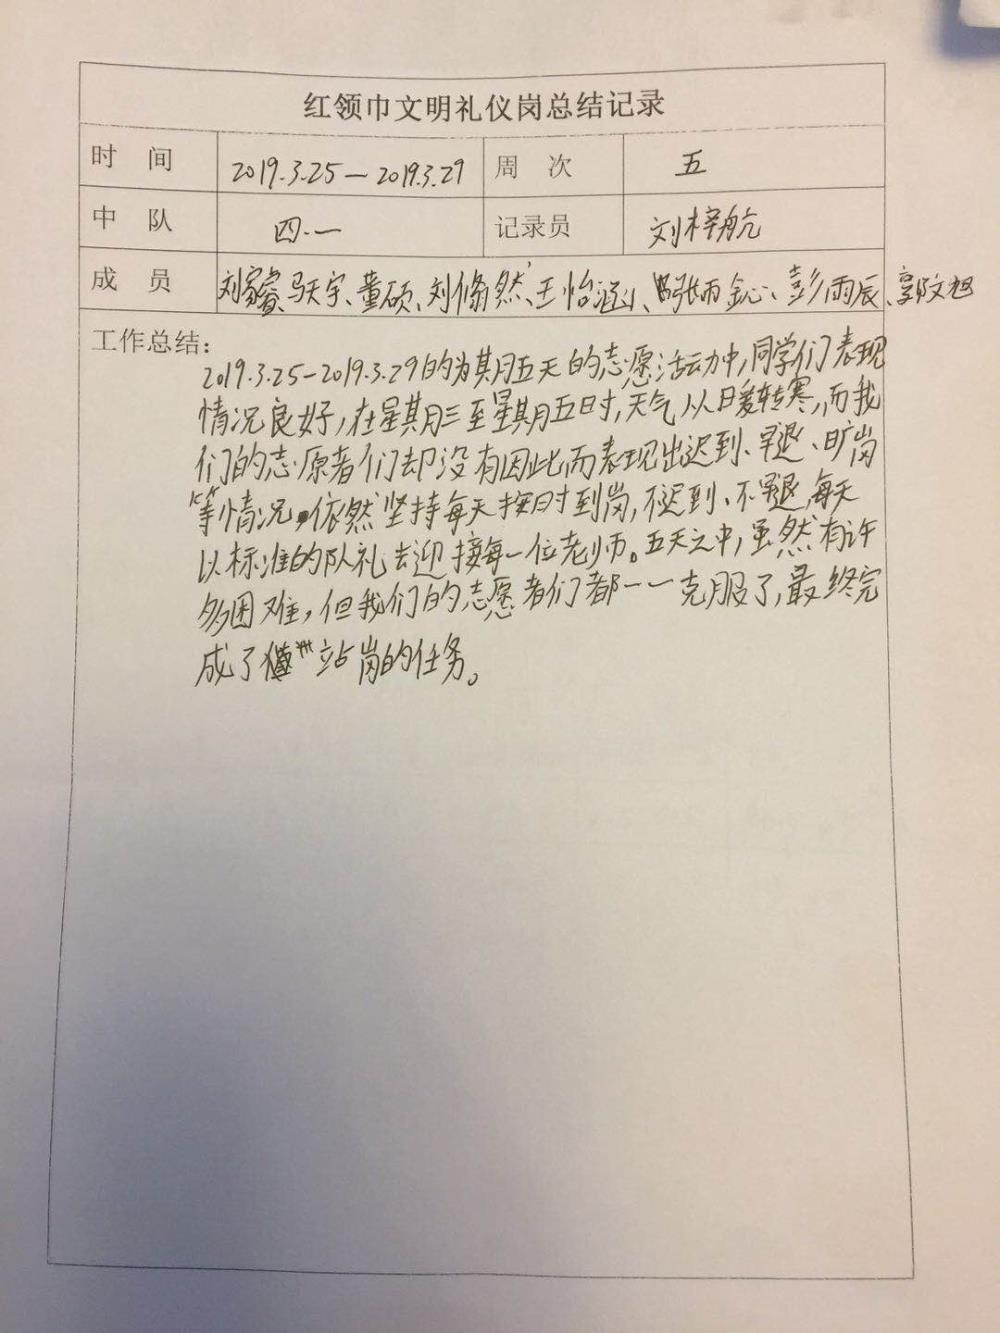 红领巾文明礼仪岗总结记录
时 间 2019.3.25—2019.3.29 周 次 五
中 队 四.一 记录员 刘梓航
成 员 刘家睿、马天宇、董硕、刘修然、王怡涵、张雨鑫、彭雨辰、郭文旭
工作总结：
2019.3.25-2019.3.29的为期五天的志愿活动中,同学们表现
情况良好,在星期三至星期五时,天气从暖转寒,而我
们的志愿者们却没有因此而表现出迟到、早退、旷岗
等情况。依然坚持每天按时到岗,不迟到、不早退,每天
以标准的队礼去迎接每一位老师。五天之中,虽然有许
多困难,但我们的志愿者们都一一克服了,最终完
成了站岗的任务。